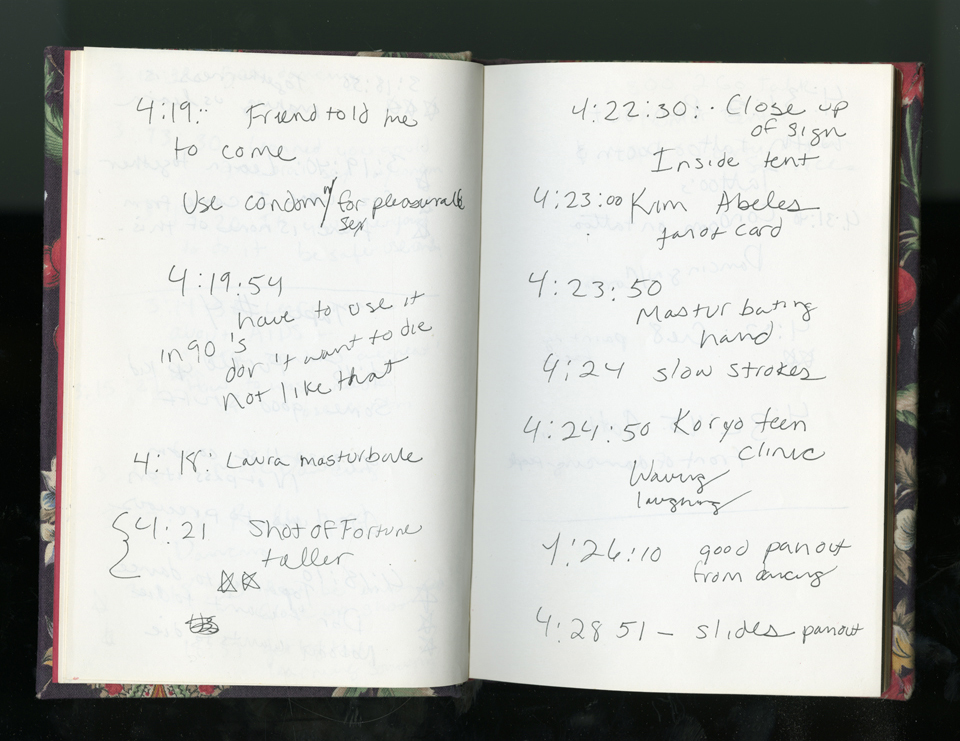 4:19:
Friend told me
to come
Use condom for pleasurable
sex
4:19:54
have to use it
in 90's
don't want to die
not like that
4:18: Laura masturbate
4:21 Shot of Fortune
teller
4:22:30: Close up
of sign
Inside tent
4:23:00 Kim Abeles
tarot card
4:23:50
Masturbating
hand
4:24 slow strokes
4:24:50 Koryo teen
clinic
Waving
laughing
4:26:10 good panout
from dancing
4:28 51 - slides panout